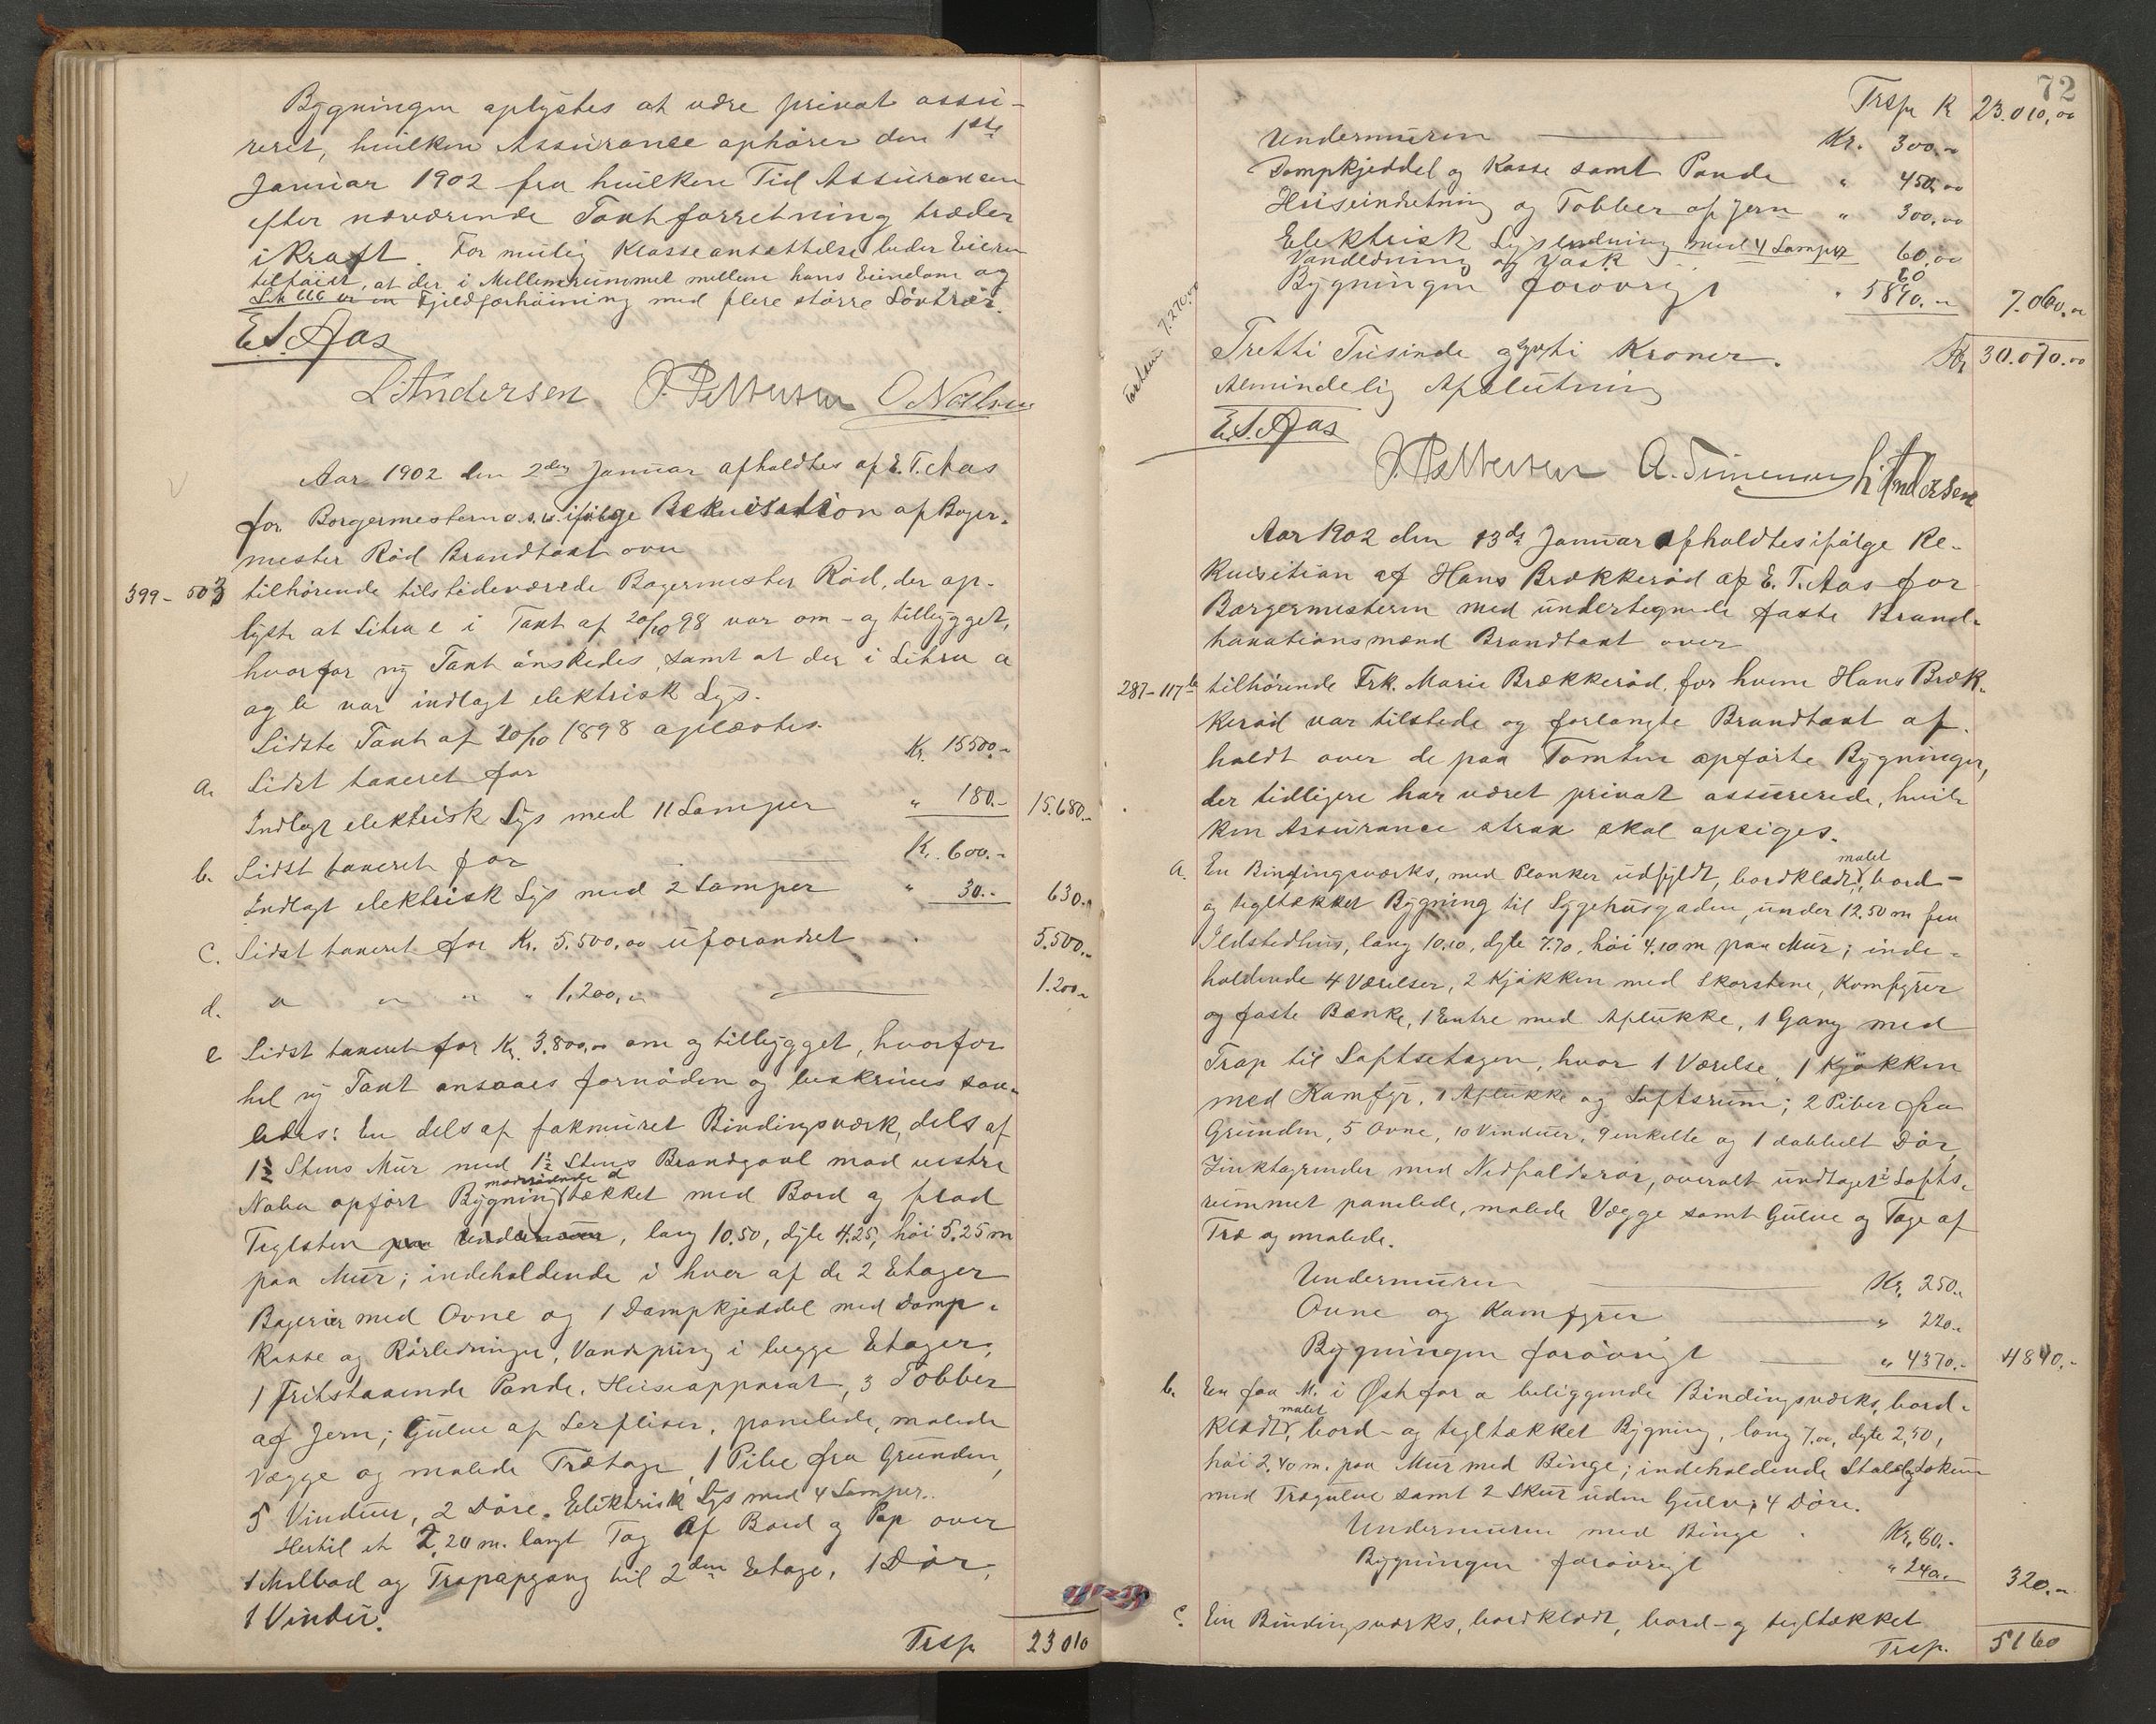 Bygningen oplystes at være privat assu-
reret, hvilken Assurance ophører den 1ste
Januar 1902 fra hvilken Tid Assurancen
efter nærværende Taxtforretning træder
i Kraft. For mulig Klasseansættelse beder Eieren
tilføiet, at der i Mellemrummet mellem hans Eiendom og
er en Fjeldforhøining med flere større Løvtrær.
E. T. Aas
L. Andersen J. Pettersen O Nielsen
Aar 1902 den 2den Januar afholdtes af E. T. Aas
for Borgermesteren o.s.v. ifølge Rekvisition af Bager-
mester Röd Brandtaxt over
399 - 503 tilhørende tilstedeværende Bagermester Röd, der op-
lyste at Litra e i Taxt af 20/10 98 var om- og tilbygget,
hvorfor ny Taxt ønskedes, samt at der i Litra a
og b var indlagt elektrisk Lys.
Sidste Taxt af 20/10 1898 oplæstes.
a. Sidst taxeret for Kr. 15500.-
Indlagt elektrisk Lys med 11 Lamper " 180.- 15.680.-
b. Sidst taxeret for Kr. 600.-
Indlagt elektrisk Lys med 2 Lamper " 30.- 630.-
c. Sidst taxeret for Kr. 5.500,00 uforandret 5.500.-
d. " " " " 1,200,00 1.200.-
e Sidst taxeret for Kr. 3.800,00 om og tilbygget, hvorfor
hel ny Taxt ansaaes fornøden og beskrives saa-
ledes: En dels af fakmuret Bindingsværk, dels af
1½ Stens Mur med 1½ Stens Brandgavl mod vestre
Nabo opført Bygning tækket med Bord og flad
Teglsten, lang 10.50, dyb 4.25, høi 5.25 m
paa Mur; indeholdende i hver af de 2 Etager
Bagerier med Ovne og 1 Dampkjeddel med Damp-
kasse og Rørledninger, Vandspring i begge Etager,
1 Fritstaaende Pande, Heiseapparat, 3 Tobber
af Jern; Gulve af Lerfliser, panelede, malede
Vægge og malede Trætage, 1 Pibe fra Grunden,
5 Vinduer, 2 Døre. Elektrisk Lys med 4 Lamper.
Hertil et 2,20 m. langt Tag af Bord og Pap over
og Trapopgang til 2den Etage, 1 Dør,
1 Vindu.
Trsp 23 010
72
Trsp Kr 23.010,00
Undermuren Kr. 300.-
Dampkjeddel og Kasse samt Pande " 450,00
Heiseindretning og Tobber af Jern " 300,00
Elektrisk Lysledning med 4 Lamper 60,00
Vandledning og Vask 60
Bygningen forøvrigt " 5890.- 7.060.-
Tretti Tusinde og sytti Kroner. Kr 30.070.00
Almindelig Afslutning
E. T. Aas
J. Pettersen A. Simensen L. Andersen
Aar 1902 den 13de Januar afholdtes ifølge Re-
kvisition af Hans Brækkerød af E. T. Aas for
Borgermesteren med undertegnede faste Brand-
taxationsmænd Brandtaxt over
287-117b tilhørende Frk. Marie Brækkerød, for hvem Hans Bræk-
kerød var tilstede og forlangte Brandtaxt af-
holdt over de paa Tomten opførte Bygninger,
der tidligere har været privat assurerede, hvil-
ken Assurance strax skal opsiges.
a. En Bindingsværks, med Planker udfyldt, bordklædt, malet, bord-
og tegltækket Bygning til Sygehusgaden, under 12.50 m fra
Ildstedhus, lang 10.10, dyb 7.70, høi 4.10 m paa Mur; inde-
holdende 4 Værelser, 2 Kjøkken med Skorstene, Komfyrer
og faste Bænke, 1 Entre med Aflukke, 1 Gang med
Trap til Loftsetagen, hvor 1 Værelse, 1 Kjøkken
med Komfyr, 1 Aflukke og Loftsrum; 2 Piber fra
Grunden, 5 Ovne, 10 Vinduer, 9 enkelte og 1 dobbelt Dør,
Zinktagrender med Nedfaldsrør, overalt undtaget i Lofts-
rummet panelede, malede Vægge samt Gulve og Tage af
Træ og malede.
Undermuren Kr. 250.-
Ovne og Komfyrer " 220.-
Bygningen forøvrigt " 4370.- 4840.-
b. En faa M. i Øst for a beliggende Bindingsværks, bord-
klædt, malet, bord- og tegltækket Bygning, lang 7,00, dyb 2,50,
høi 2.40 m. paa Mur med Binge; indeholdende Stald og Lokum
med Trægulve samt 2 Skur uden Gulv; 4 Døre.
Undermuren med Binge Kr. 80.-
Bygningen forøvrigt " 240.- 320.-
c. En Bindingsværks, bordklædt, bord- og tegltækket
Trsp. 5160